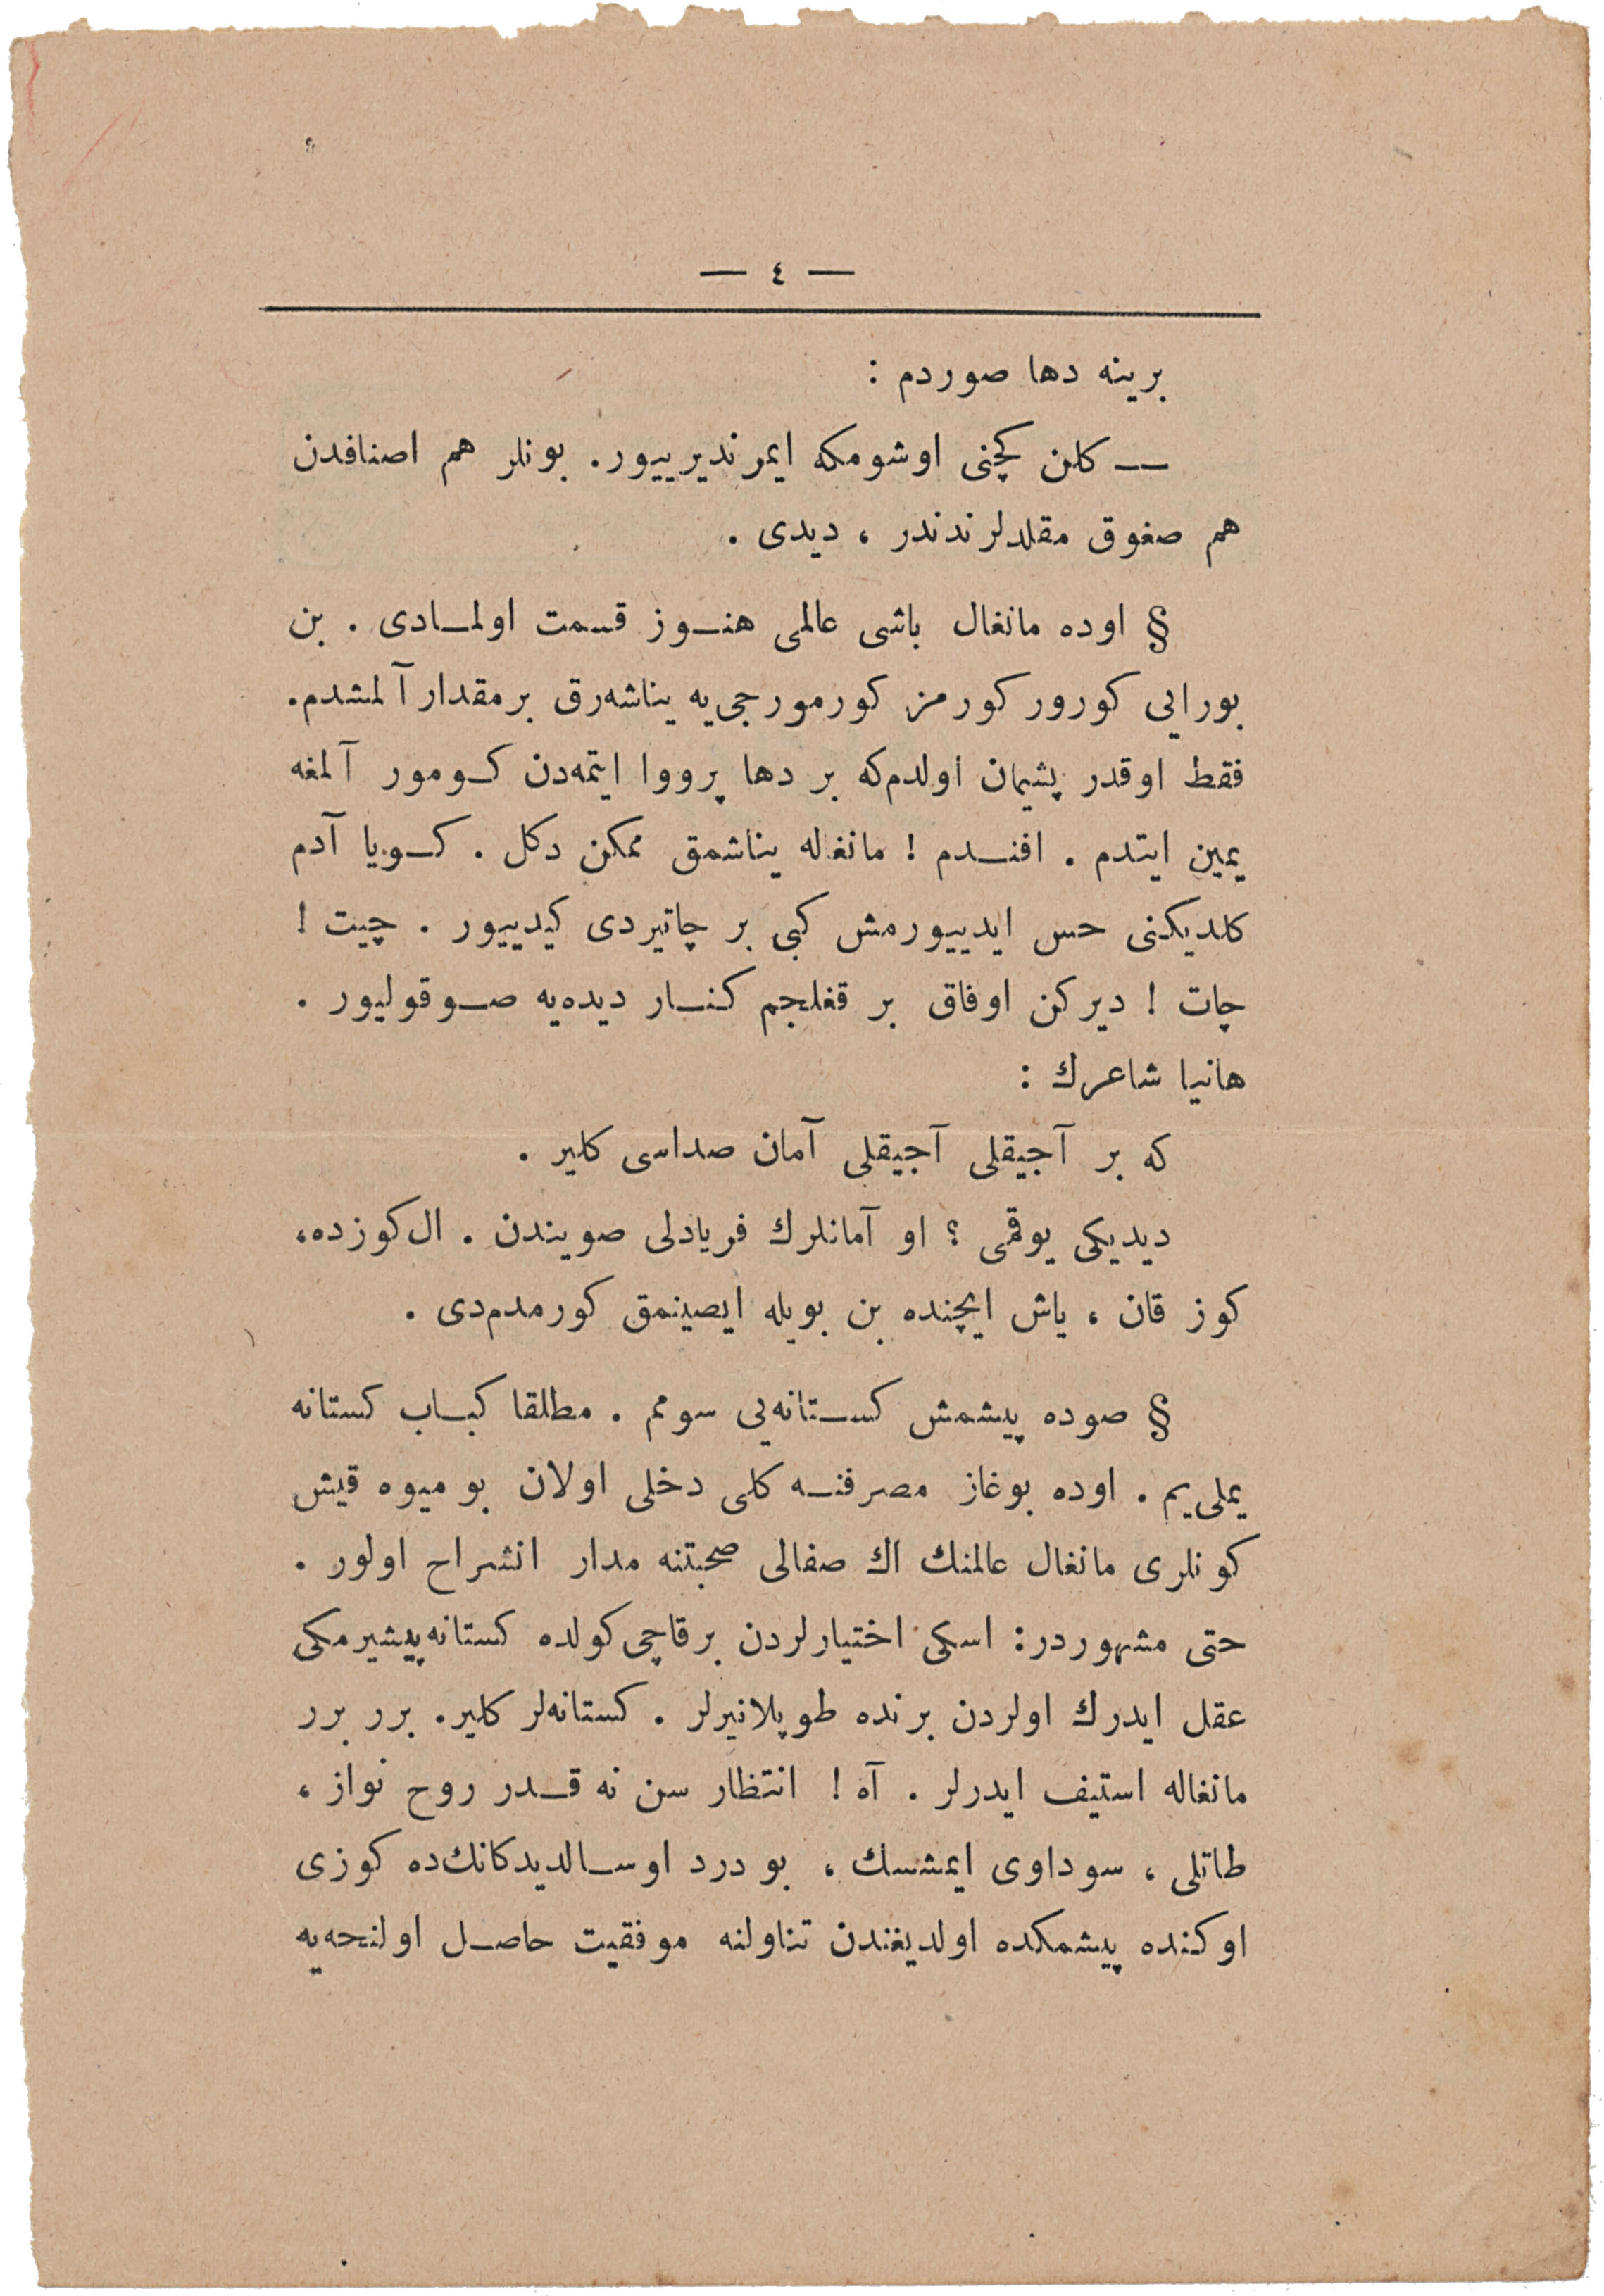 — ٤ —
برينه دها صوردم :
— كلن كچنى اوشومكه ايمرنديرييور. بونلر هم اصنافدن
هم صغوق مقلدلرندندر ، ديدى .
§ اوده مانغال باشى عالمى هنوز قسمت اولمادى . بن
بورايى كورور كورمز كورمورجى‌يه يناشه‌رق برمقدار آلمشدم.
فقط اوقدر پشيمان اولدم‌كه بر دها پرووا ايتمه‌دن كومور آلمغه
يمين ايتدم . افندم ! مانغاله يناشمق ممكن دكل . كويا آدم
كلديكنى حس ايدييورمش كبى بر چاتيردى كيدييور . چيت !
چات ! ديركن اوفاق بر قغلجم كنار ديده‌يه صوقوليور .
هانيا شاعرك :
كه بر آجيقلى آجيقلى آمان صداسى كلير .
ديديكى يوقمى ؟ او آمانلرك فريادلى صويندن . ال كوزده،
كوز قان ، ياش ايچنده بن بويله ايصينمق كورمدم‌دى .
§ صوده پيشمش كستانه‌يى سوممم . مطلقا كباب كستانه
يملى‌يم . اوده بوغاز مصرفنه كلى دخلى اولان بو ميوه قيش
كونلرى مانغال عالمنك اك صفالى صحبتنه مدار انشراح اولور .
حتى مشهوردر: اسكى اختيارلردن برقاچى كولده كستانه پيشيرمكى
عقل ايدرك اولردن برنده طوپلانيرلر . كستانه‌لر كلير. برر برر
مانغاله استيف ايدرلر . آه ! انتظار سن نه قدر روح نواز ،
طاتلى ، سوداوى ايمشسك ، بو درد اوسالديدكانك‌ده كوزى
اوكنده پيشمكده اولديغندن تناولنه موفقيت حاصل اولنجه‌يه